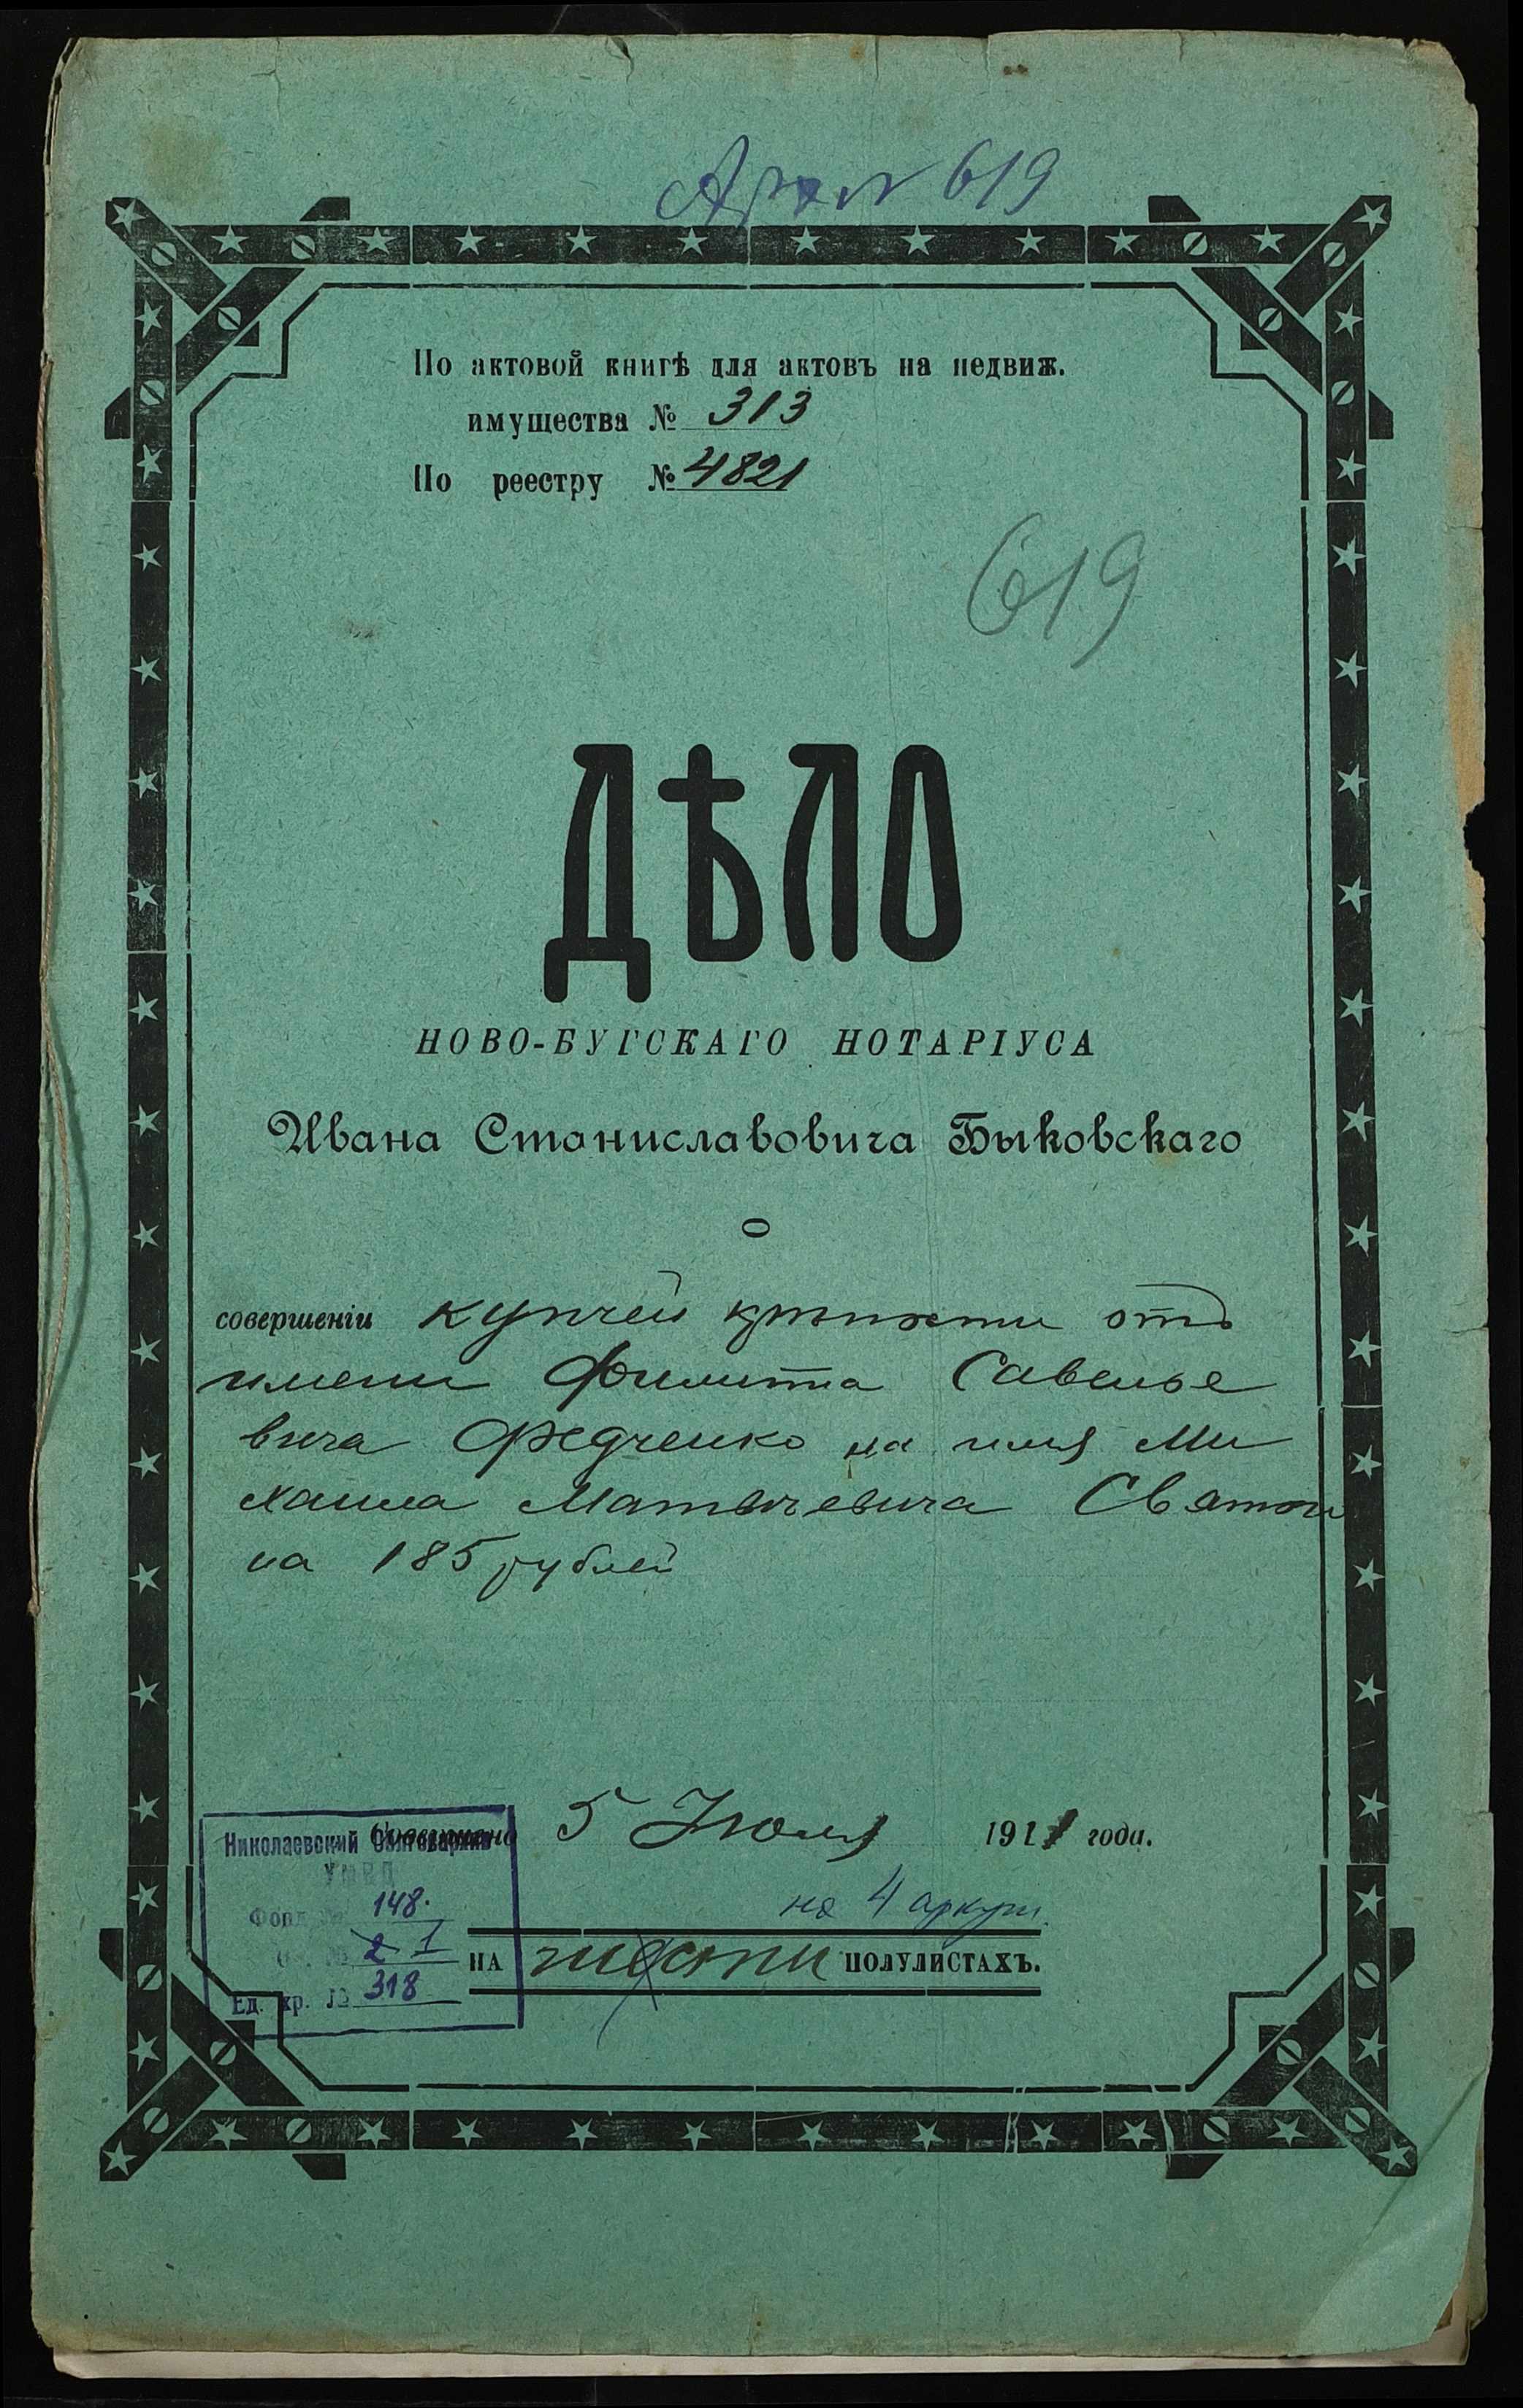 619
По актовой книгѣ для актовъ на недвиж.
имущества № 313
По реестру № 4821
619
ДѢЛО
НОВО-БУГСКАГО НОТАРІУСА
Ивана Станиславовича Быковскаго
о
совершеніи купчей крѣпости отъ
имени Филиппа Савелье
вича Федченко на имя Ми
хаила Матвѣевича Святой
на 185 рублей
Совершено 5 Іюля 1911 года.
Николаевский Облгосархив
УМВД
Фонд № 148.
Оп. № 2 1
Ед. хр. № 318
на 4 аркуш.
НА шести ПОЛУЛИСТАХЪ.